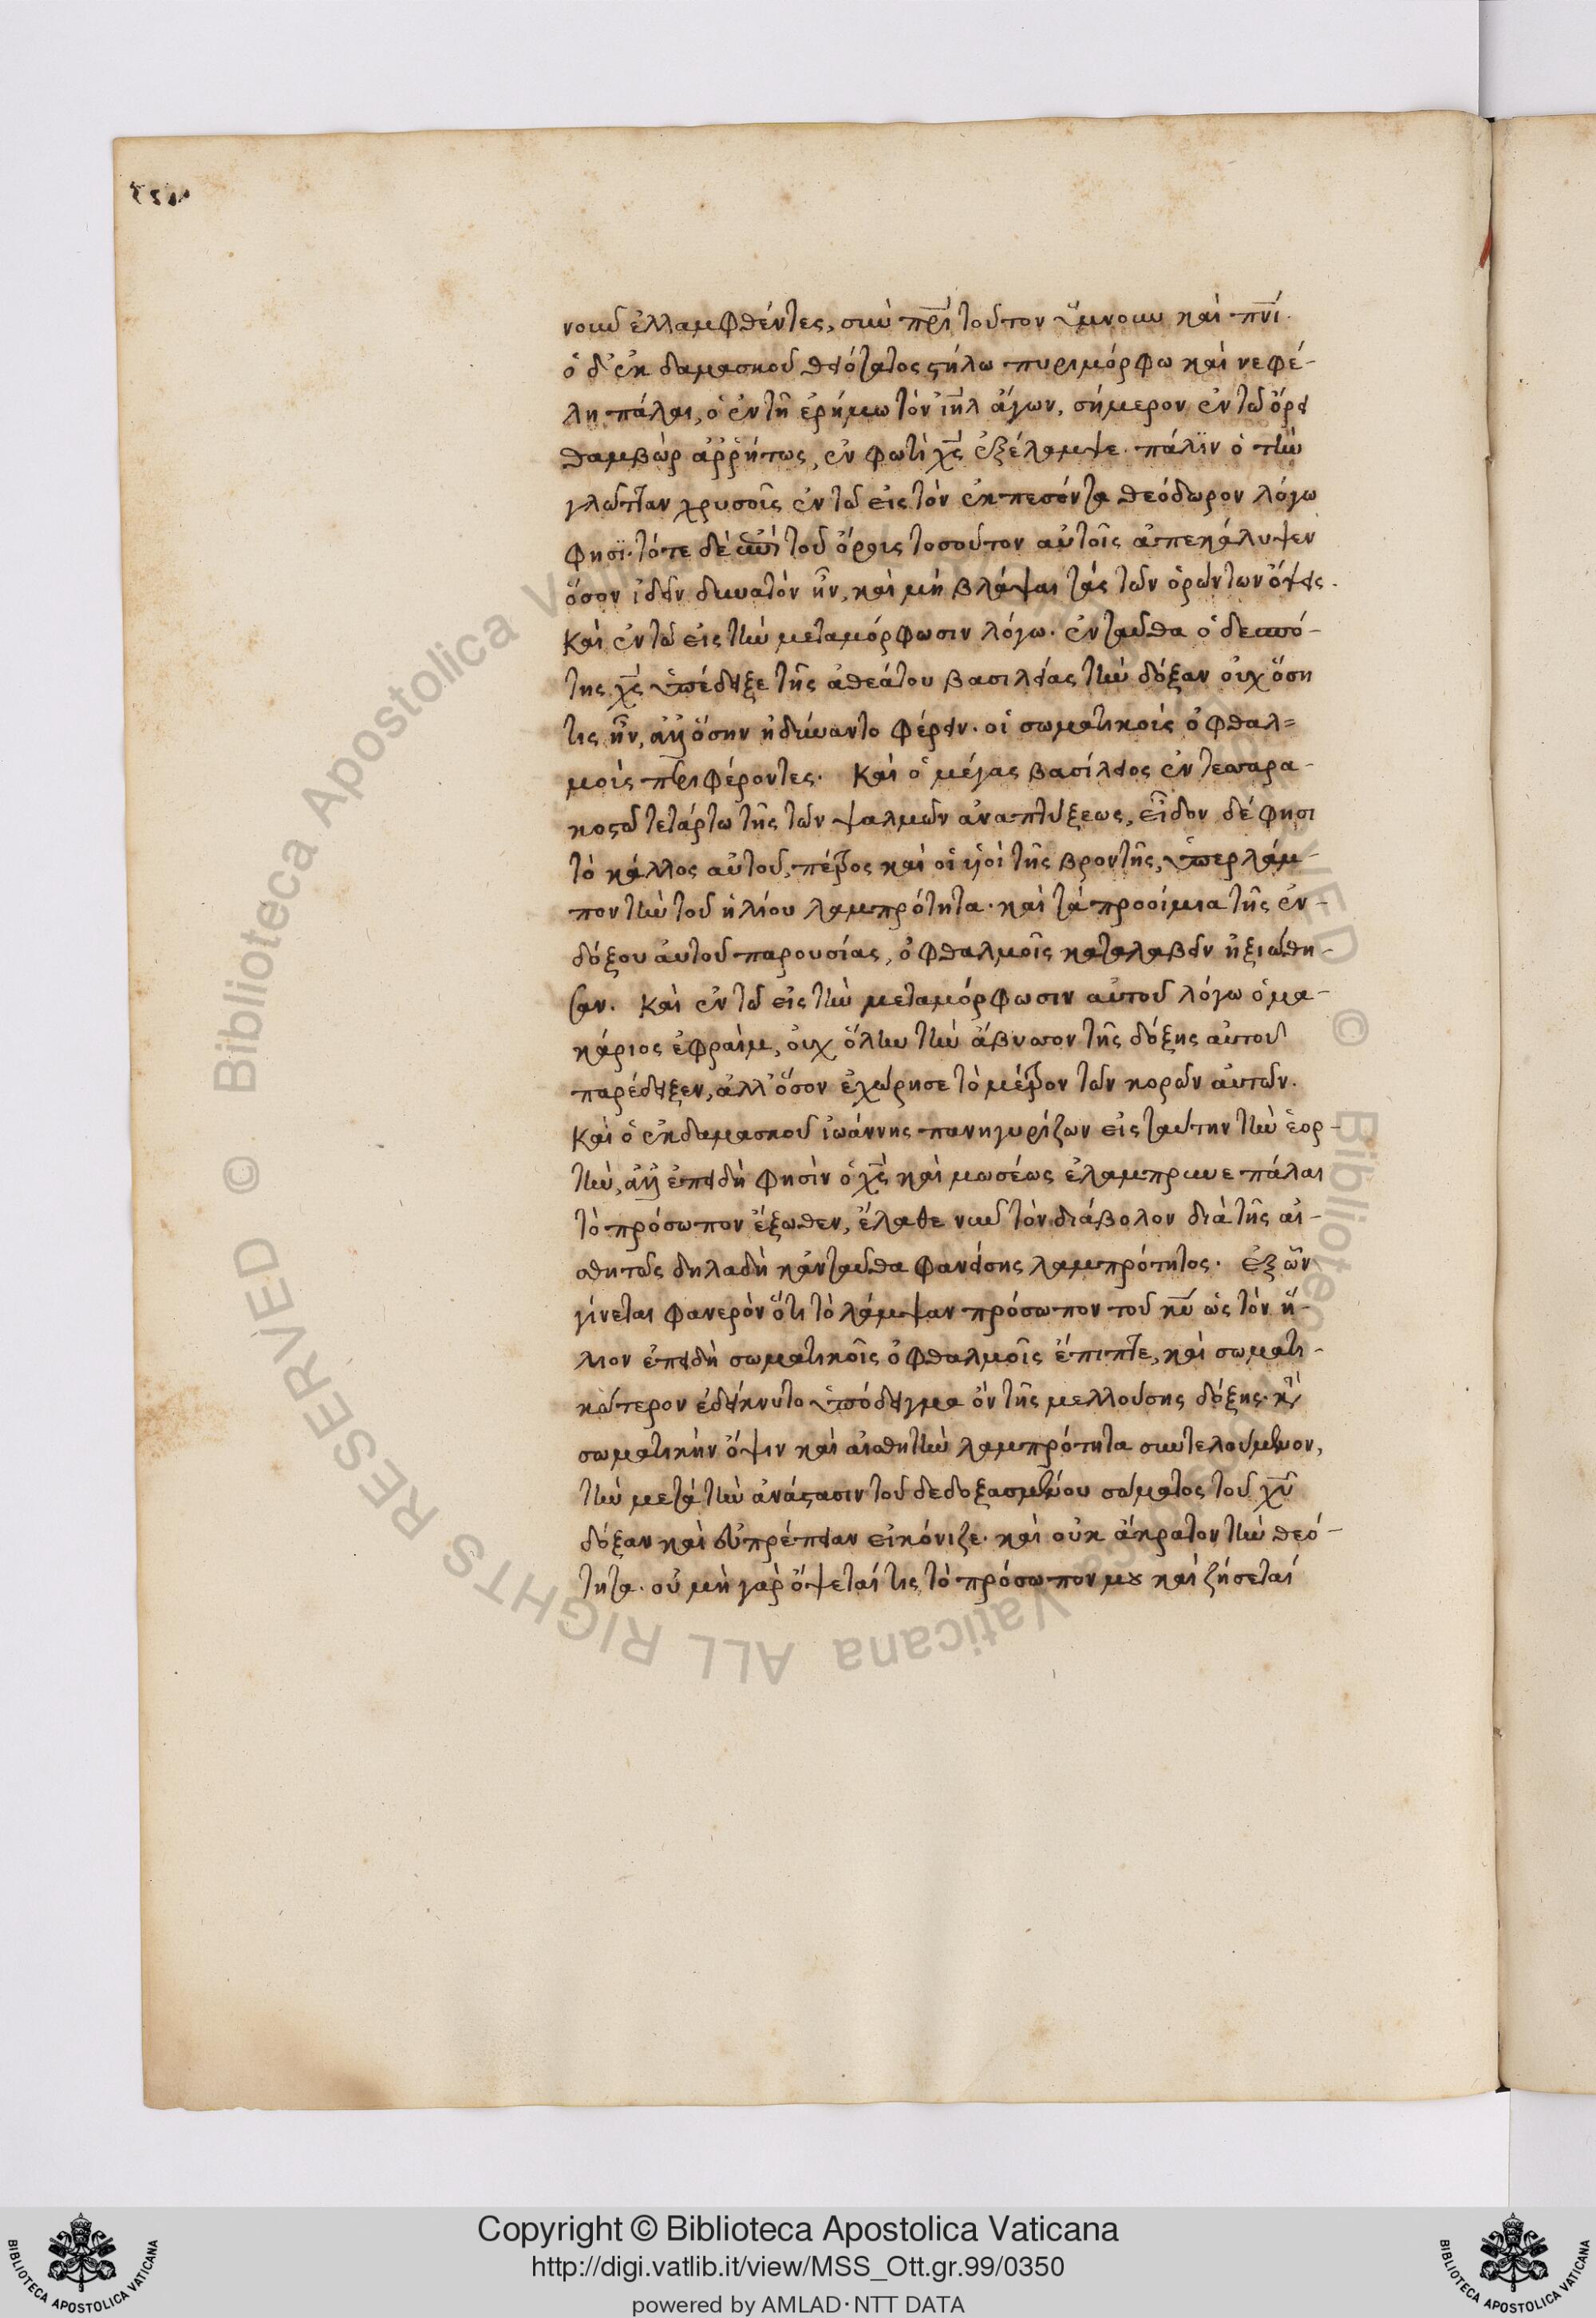 νουν ἐλλαμφθέντες, σὺν πρὶ τοῦτον ὕμνουν καὶ πνί.
ὁ δ' ἐκ δαμασκοῦ θειότατος στήλω πυριμόρφω καὶ νεφέ-
λη πάλαι, ὁ ἐν τῆ ἐρήμω τὸν ἰηλ ἄγων, σήμερον ἐν τῶ ὄρει
θαμβὼρ ἀρρήτως, ἐν φωτὶ χς ἐξέλαμψε. πάλϊν ὁ τὴν
γλῶτταν χρυσοῖς ἐν τῶ εἰς τὸν ἐκπεσόντα θεόδωρον λόγω
φησϊ. τότε δὲ ἐπὶ τοῦ ὄρους τοσοῦτον αὐτοῖς ἀπεκάλυψεν
ὅσον ἰδεῖν δυνατὸν ἦν, καὶ μὴ βλάψαι τὰς τῶν ὁρώντων ὄψεις.
καὶ ἐν τῶ εἰς τὴν μεταμόρφωσιν λόγω. ἐνταῦθα ὁ δεσπό-
της χς ὑπέδειξε τῆς ἀθεάτου βασιλείας τὴν δόξαν οὐχ ὅση
τις ἦν, ἀλλ' ὅσην ἠδύναντο φέρειν. οἱ σωματικοὶς ὀφθαλ=
μοὶς περιφέροντες. καὶ ὁ μέγας βασίλειος ἐν τεσσαρα-
κοστῶ τετάρτω τῆς τῶν ψαλμῶν ἀναπτύξεως, εἶδον δέ φησι
τὸ κάλλος αὐτοῦ, πέτρος καὶ οἱ υἱοὶ τῆς βροντῆς, ὑπερλάμ-
πον τὴν τοῦ ἡλίου λαμπρότητα. καὶ τὰ προοίμια τῆς ἐν-
δόξου ἀυτοῦ παρουσίας, ὀφθαλμοῖς καταλαβεῖν ἠξιώθη-
σαν. καὶ ἐν τῶ εἰς τὴν μεταμόρφωσιν αὐτοῦ λόγω ὁ μα-
κάριος ἐφραὶμ, οὐχ ὅλην τὴν ἄβυσσον τῆς δόξης αὐτοῦ
παρέδειξεν, ἀλλ' ὅσον ἐχώρησε τὸ μέτρον τῶν κορῶν ἀυτῶν.
καὶ ὁ ἐκ δαμασκοῦ ἰωάννης πανηγυρίζων εἰς ταύτην τὴν ἑορ-
τὴν, ἀλλ' ἐπειδὴ φησὶν ὁ χς καὶ μωσέως ἐλαμπρυνε πάλαι
τὸ πρόσωπον ἔξωθεν, ἔλαθε νῦν τὸν διάβολον διὰ τῆς αἰ-
σθητῶς δηλαδὴ κἀνταῦθα φανείσης λαμπρότητος. ἐξ ὧν
γίνεται φανερὸν ὅτι τὸ λάμψαν πρόσωπον τοῦ κυ ὡς τὸν ἥ-
λιον ἐπειδὴ σωματικοῖς ὀφθαλμοῖς ἔπιπτε, καὶ σωματι-
κώτερον ἐδείκνυτο ὑπόδειγμα ὂν τῆς μελλούσης δόξης. κατὰ
σωματικὴν ὄψιν καὶ αἰσθητὴν λαμπρότητα συντελούμενον,
τὴν μετὰ τὴν ἀνάστασιν τοῦ δεδοξασμένου σώματος τοῦ χυ
δόξαν καὶ εὐπρέπειαν εἰκόνιζε. καὶ οὐκ ἄκρατον τὴν θεό-
τητα. οὐ μὴ γὰρ ὄψεταί τις τὸ πρόσωπον μου καὶ ζήσεταί
© Biblioteca Apostolica Vaticana ALL RIGHTS RESERVED
Copyright © Biblioteca Apostolica Vaticana
http://digi.vatlib.it/view/MSS_Ott.gr.99/0350
powered by AMLAD·NTT DATA
BIBLIOTECA APOSTOLICA VATICANA
BIBLIOTECA APOSTOLICA VATICANA